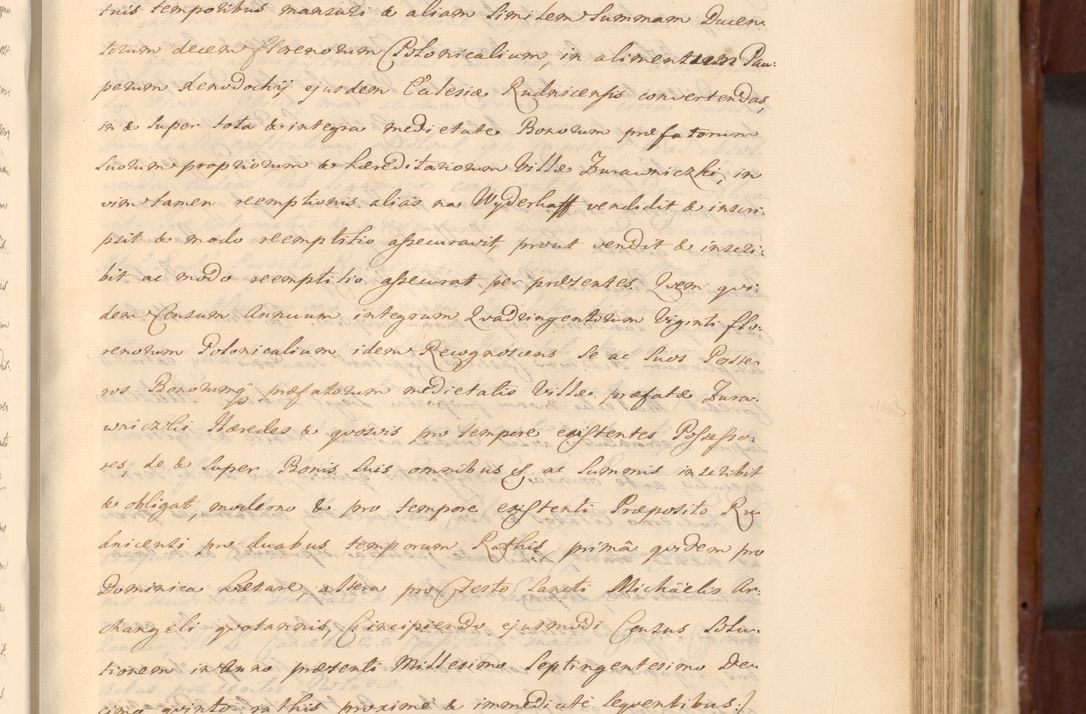 tuis temporibus mansuri & aliam similem Summam Ducen-
torum decem florenorum Polonicalium, in alimentum Pau-
perum Xenodochÿ ejusdem Ecclesiæ Rudnicensis convertendas,
in & super tota & integra medietate Bonorum præfatorum
suorum propriorum & hæreditariorum Villæ Zurawniczki, in
vim tamen reemptionis alias na Wyderkaff vendidit & inscri-
psit & modo reemptitio assecuravit, prout vendit & inscri-
bit ac modo reemptitio assecurat per præsentes. Quem qui-
dem Censum Annuum integrum Quadringentorum Viginti flo-
renorum Polonicalium idem Recognoscens se ac suos Poste-
ros Bonorumq præfatorum medietatis Villæ præfatæ Zura-
wniczki Hæredes & quosvis pro tempore existentes Possesso-
res, de & super Bonis suis omnibus ac Summis inscribit
& obligat, moderno & pro tempore existenti Præposito Ru-
dnicensi pro duabus temporum Rathis, primâ quidem pro
Dominica Lætare, altera pro Festo Sancti Michäelis Ar-
changeli quotannis, (incipiendo ejusmodi Census Solu-
tionem in Anno præsenti Millesimo Septingentesimo De-
cimo quinto rathis proxime & immediate sequentibus)